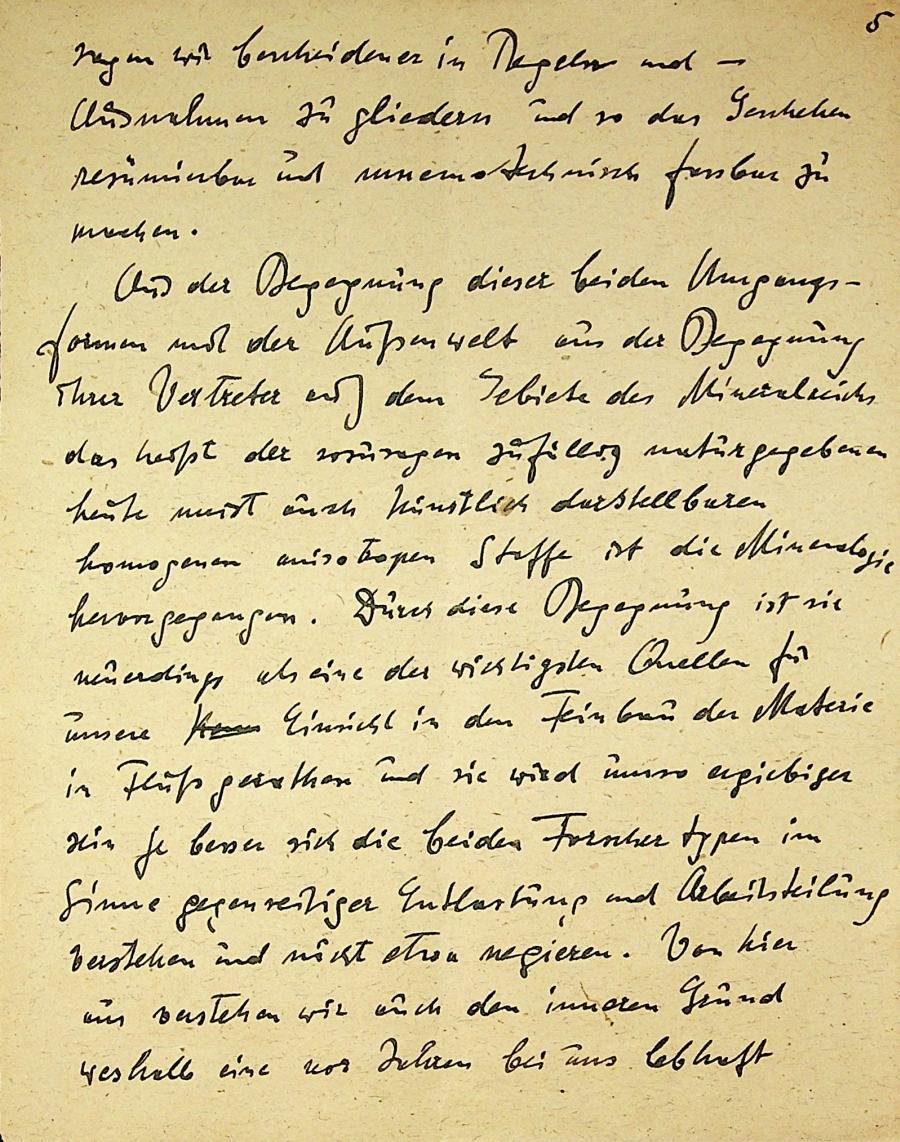 5
sagen wir bescheidener in Regeln und –
Ausnahmen zu gliedern und so das Geschehen
resümierbar und mnemotechnisch fassbar zu
machen.
Aus der Begegnung dieser beiden Umgangs-
formen mit der Außenwelt aus der Begegnung
ihrer Vertreter auf dem Gebiete des Mineralreichs
das heißt der sozusagen zufällig naturgegebenen
heute meist auch künstlich darstellbaren
homogenen anisotropen Stoffe ist die Mineralogie
hervorgegangen. Durch diese Begegnung ist sie
neuerdings als eine der wichtigsten Quellen für
unsere Einsicht in den Feinbau der Materie
in Fluß gerathen und sie wird umso ergiebiger
sein je besser sich die beiden Forschertypen im
Sinne gegenseitiger Entlastung und Arbeitsteilung
verstehen und nicht etwa negieren. Von hier
aus verstehen wir auch den inneren Grund
weshalb eine vor Jahren bei uns lebhaft